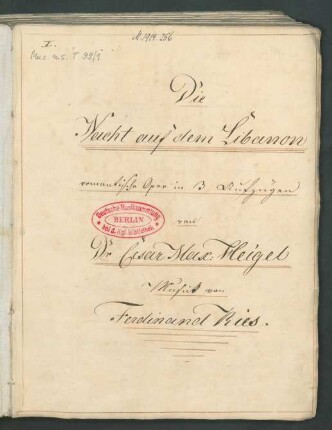 I.
M. 1914. 256
Mus. ms. T 99/1
Die
Nacht auf dem Libanon
romantische Oper in 3 Aufzügen
von
Deutsche Musiksammlung
BERLIN
bei d. Kgl. Bibliothek
Dr. Cäsar Max. Heigel
Musik von
Ferdinand Ries.